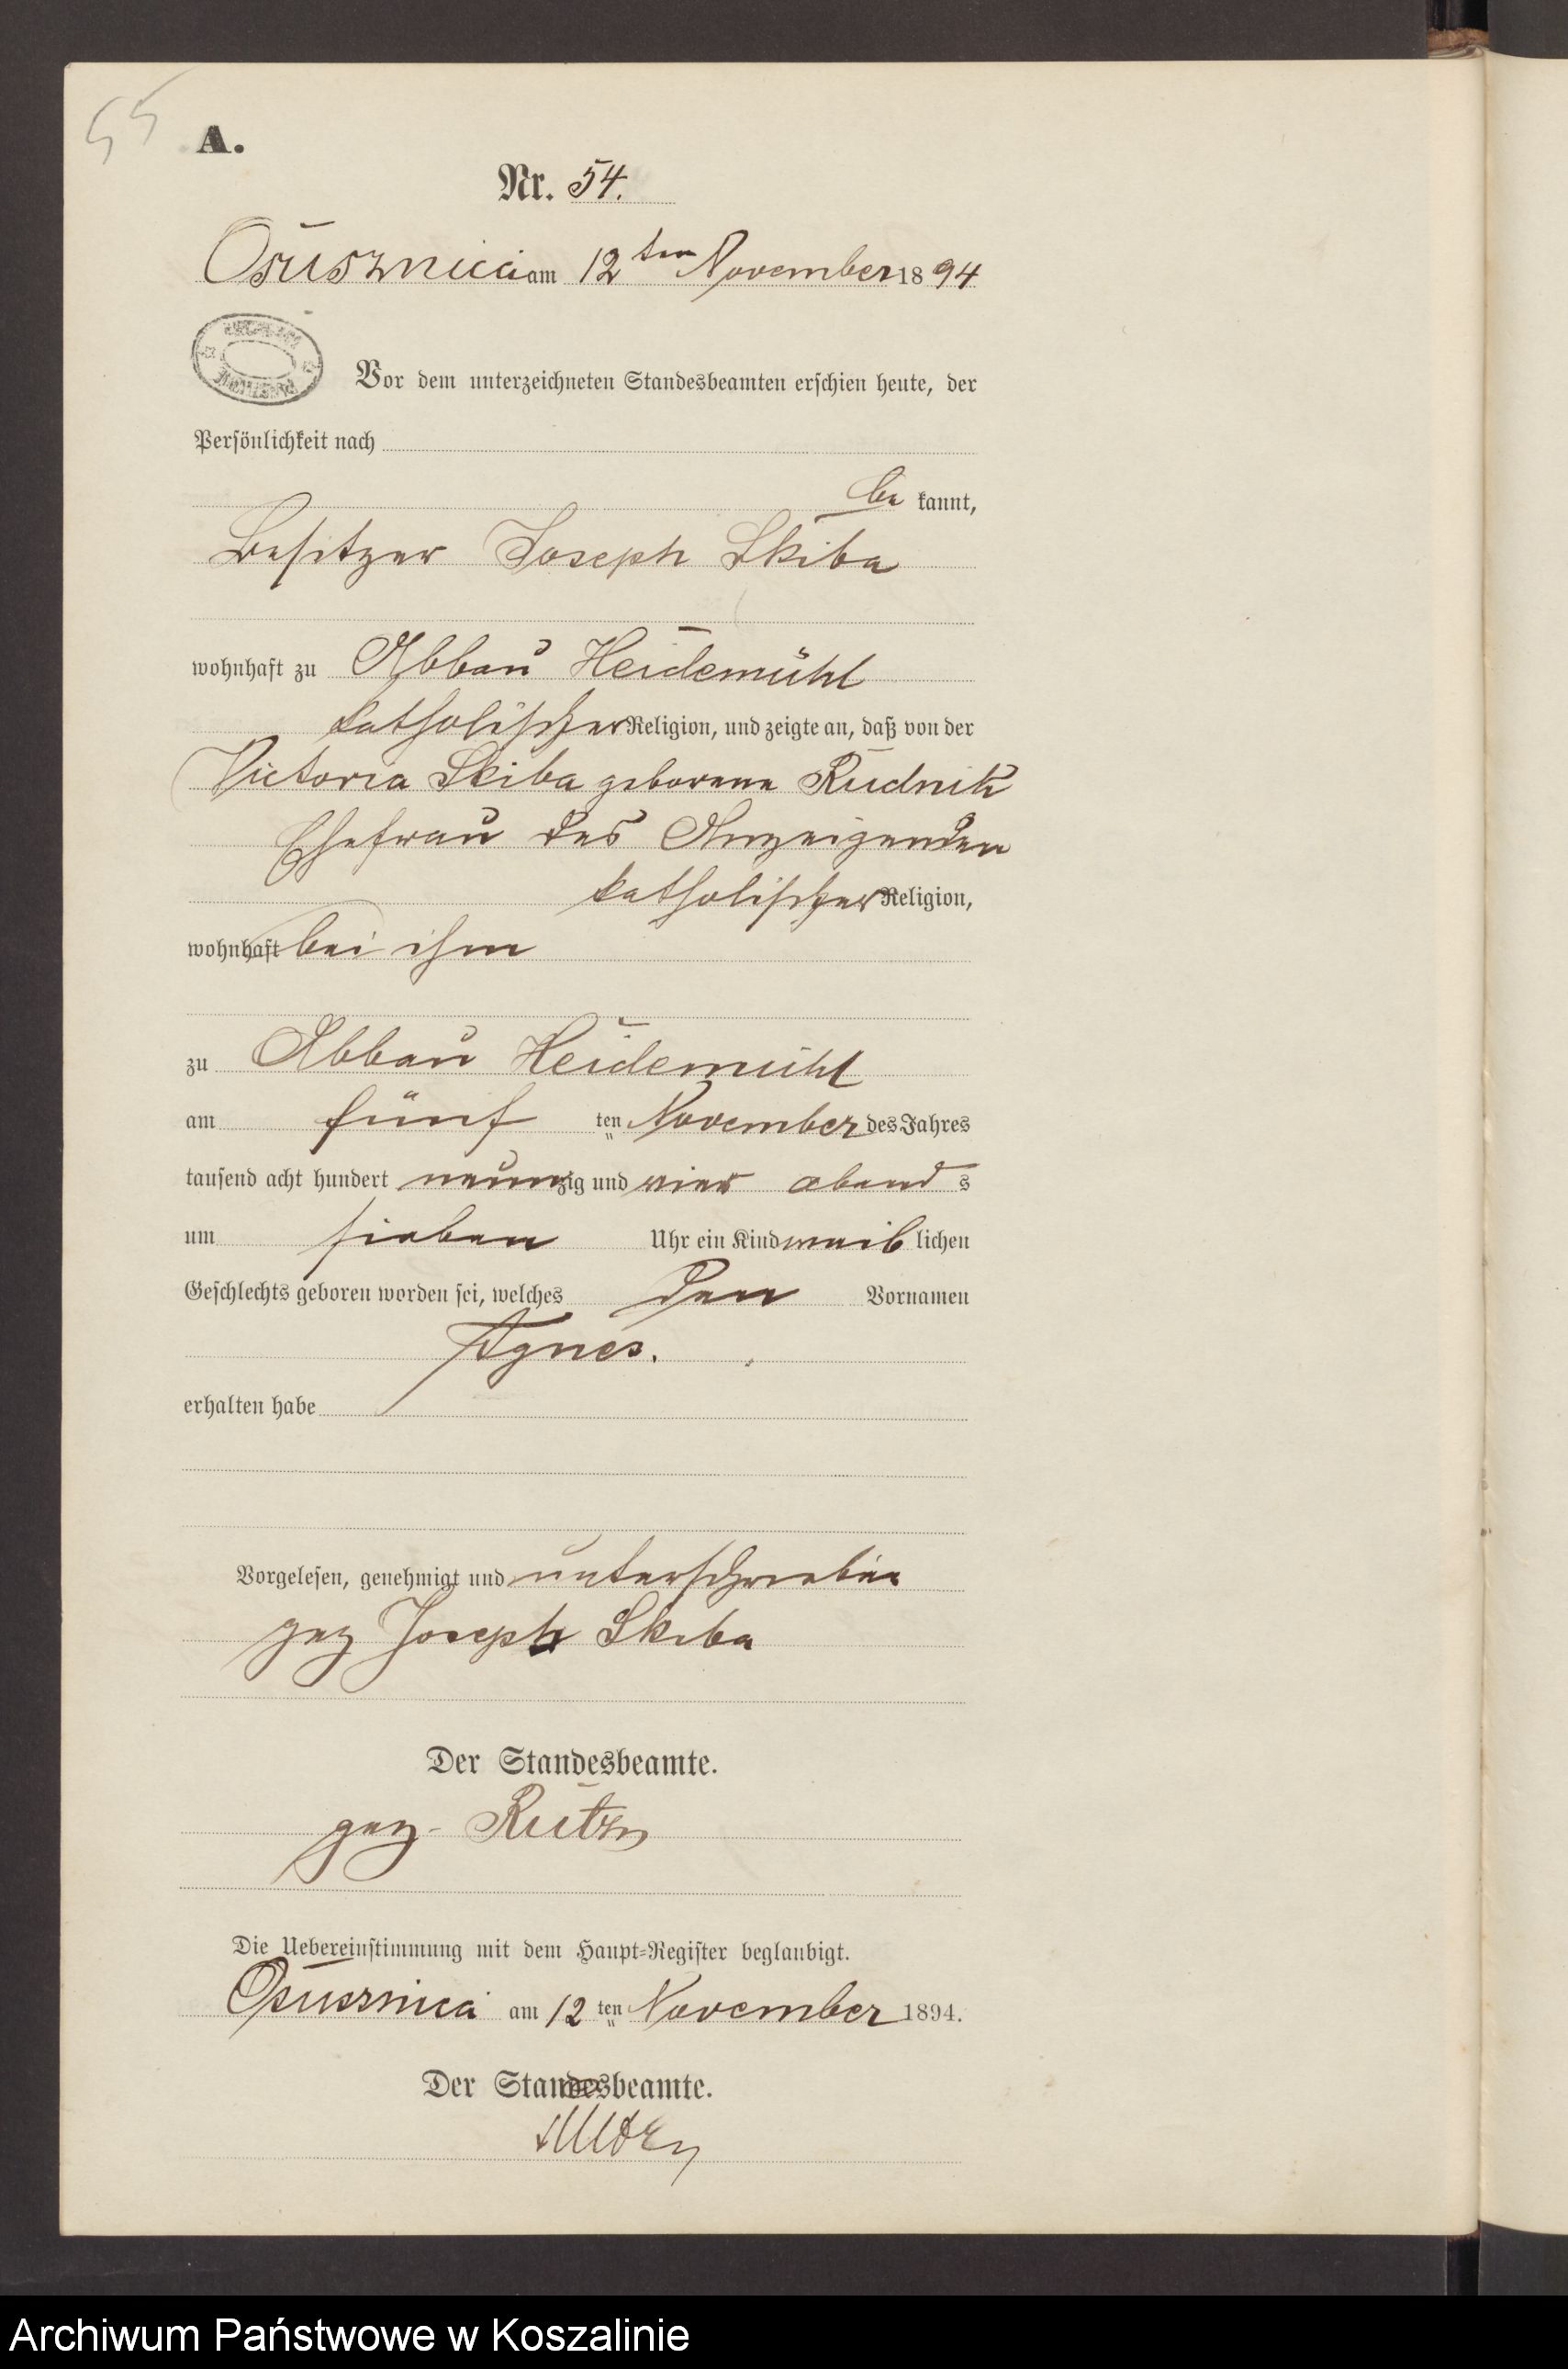 55
A.
Nr. 54.
Osusznica am 12ten November 1894
Vor dem unterzeichneten Standesbeamten erschien heute, der
Persönlichkeit nach
be kannt,
Besitzer Joseph Skiba
wohnhaft zu Abbau Heidemühl
katholischer Religion, und zeigte an, daß von der
Victoria Skiba geborene Rudnik
Ehefrau des Anzeigenden
katholischer Religion,
wohnhaft bei ihm
zu Abbau Heidemühl
am fünf ten November des Jahres
tausend acht hundert neunzig und vier abends
um sieben Uhr ein Kind weiblichen
Geschlechts geboren worden sei, welches den Vornamen
Agnes.
erhalten habe
Vorgelesen, genehmigt und unterschrieben
gez Joseph Skiba
Der Standesbeamte.
gez.
Die Uebereinstimmung mit dem Haupt-Register beglaubigt.
Osusznica am 12ten November 1894.
Der Standesbeamte.
Archiwum Państwowe w Koszalinie